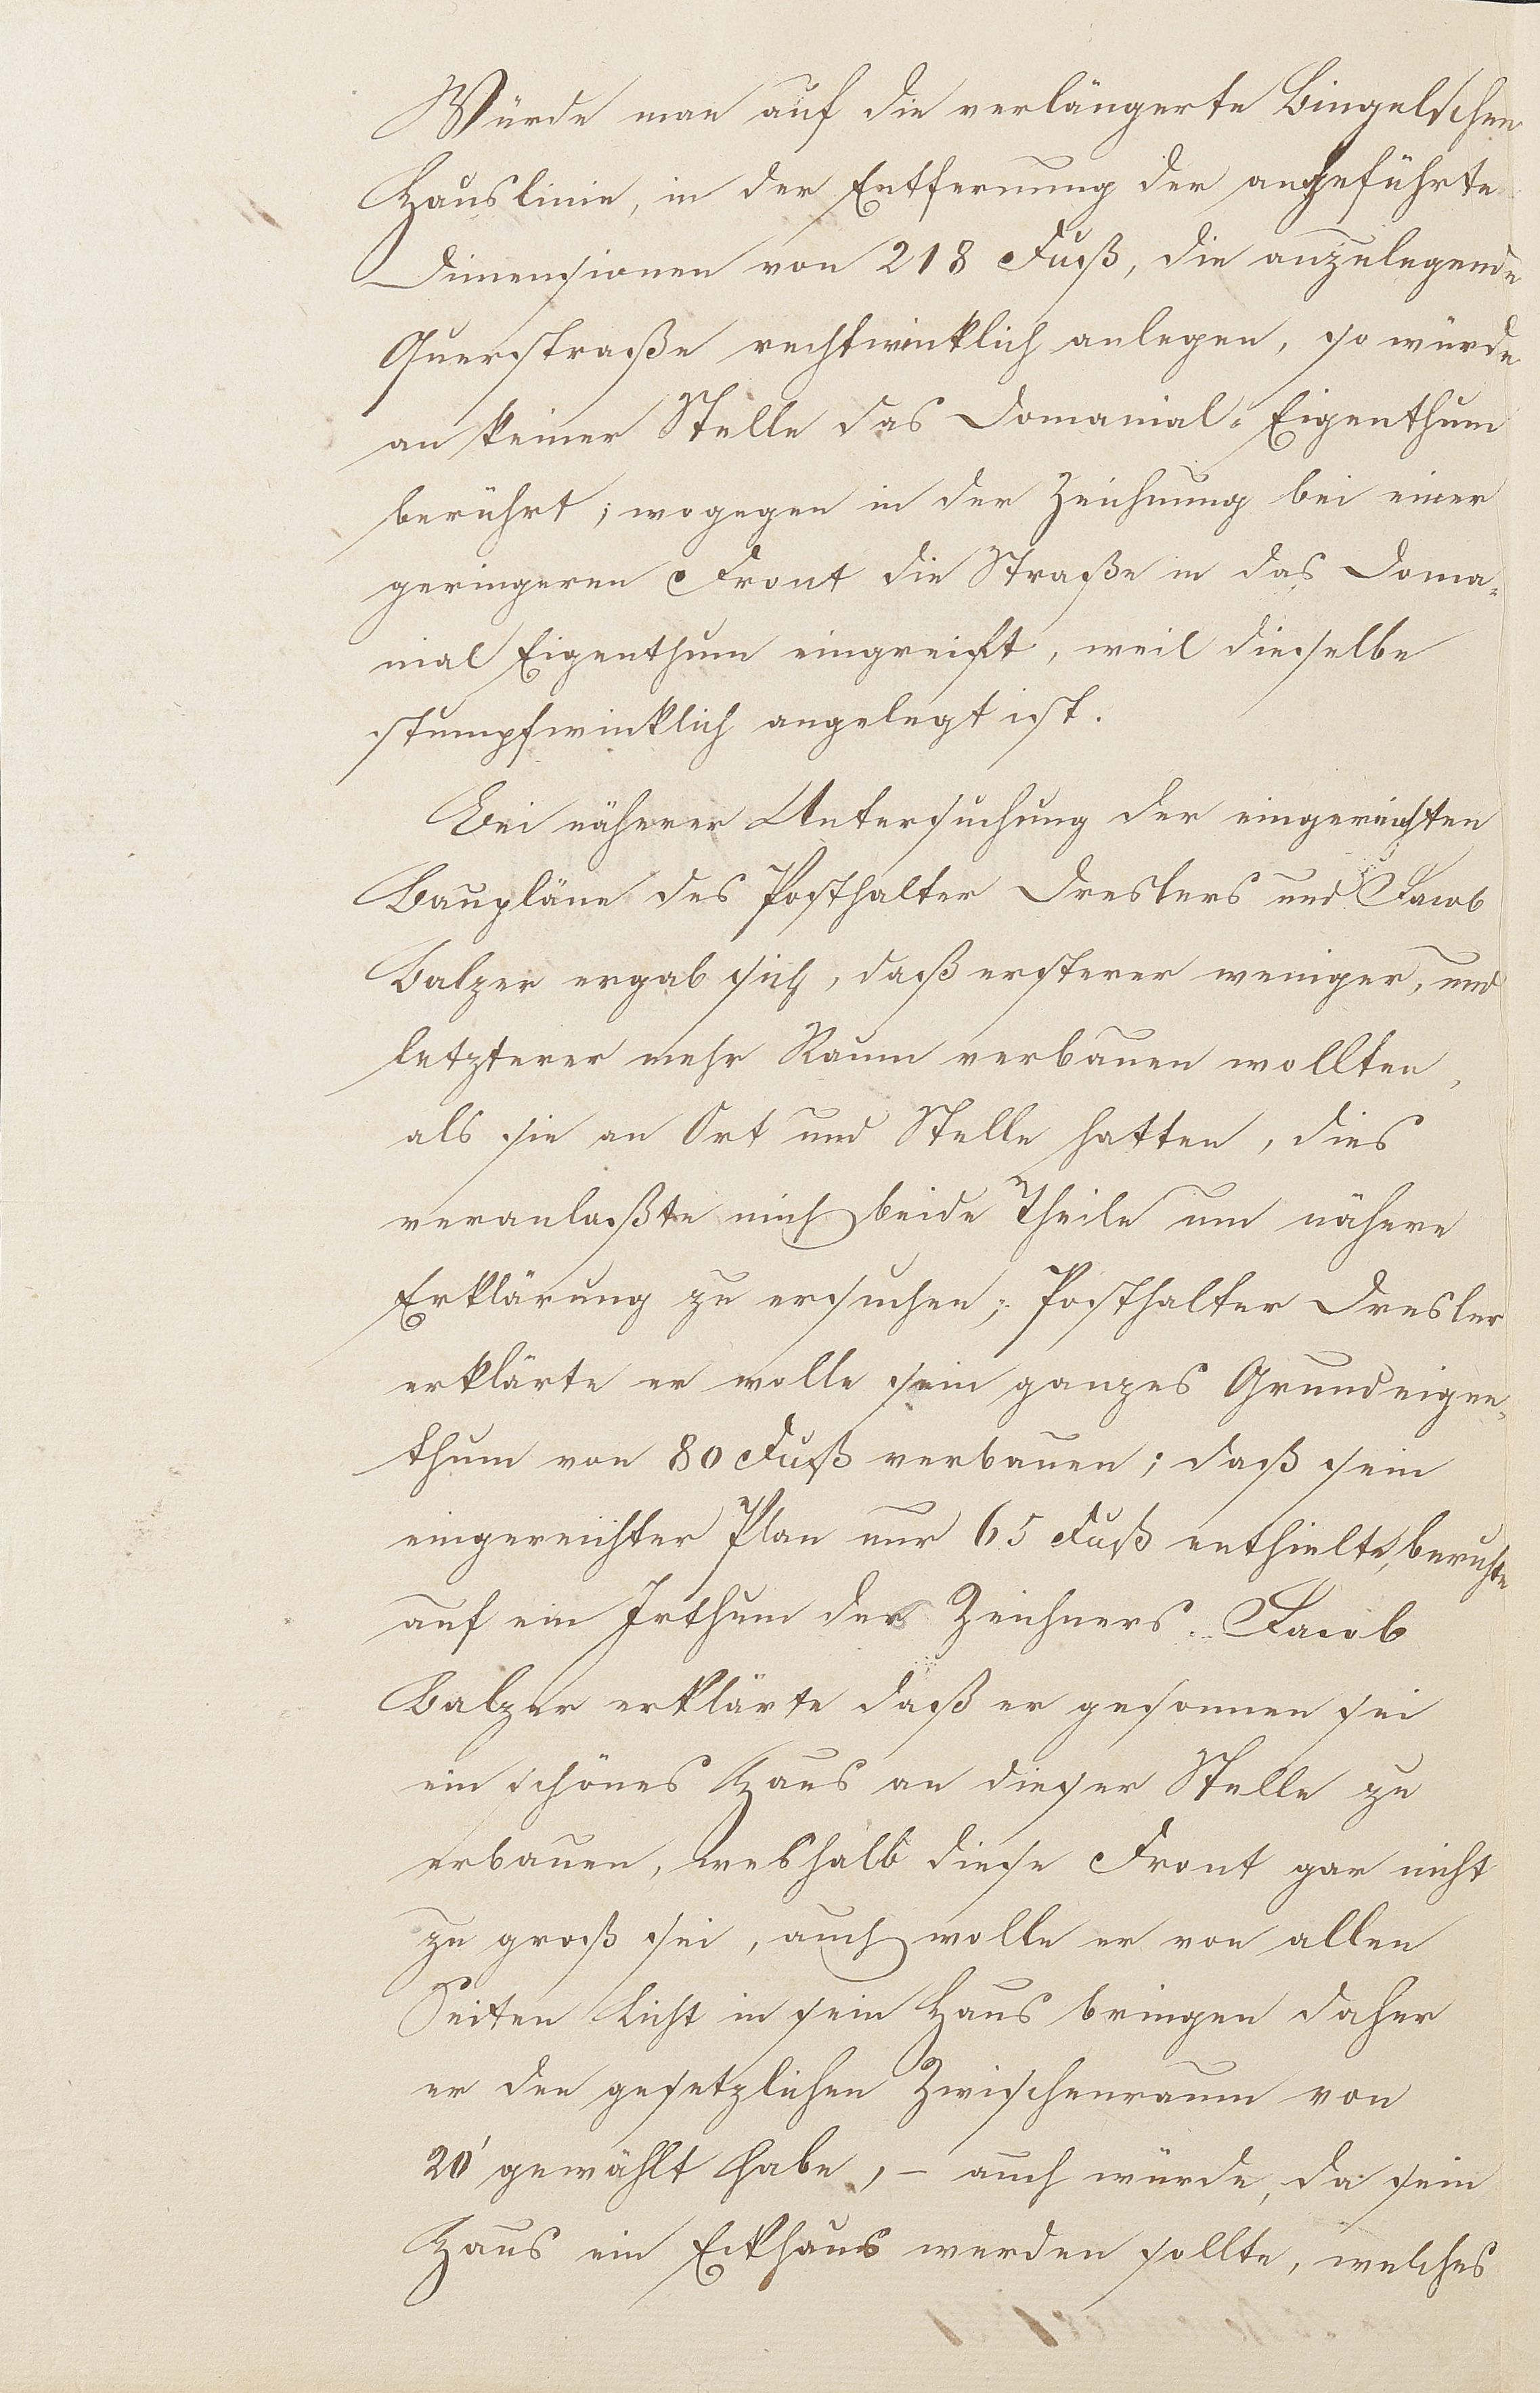 Würde man auf die verlängerte Bingelschen
Hauslinie, in der Entfernung der angeführte
Dimensionen von 218 Fuß, die anzulegende
Querstraße rechtwinklich anlegen, so würde
an keiner Stelle das Domanial-Eigenthum
berührt; wogegen in der Zeichnung bei einer
geringeren Front die Straße in das Doma-
nial Eigenthum eingreift, weil dieselbe
stumpfwinklich angelegt ist.
Bei näherer Untersuchung der eingereichten
Baupläne des Posthalter Dreslers und Jacob
Balzer ergab sich, daß ersterer weniger, und
letzterer mehr Raum verbauen wollten,
als sie an Ort und Stelle hatten, dies
veranlaßte mich beide Theile um nähere
Erklärung zu ersuchen; Posthalter Dresler
erklärte er wolle sein ganzes Grundeigen-
thum von 80 Fuß verbauen; daß sein
eingereichter Plan nur 65 Fuß enthielte, beruhte
auf ein Irthum des Zeichners. Jacob
Balzer erklärte daß er gesonnen sei
ein schönes Haus an dieser Stelle zu
erbauen, weshalb diese Front gar nicht
zu groß sei, auch wolle er von allen
Seiten Licht in sein Haus bringen daher
er den gesetzlichen Zwischenraum von
20' gewählt habe, – auch würde, da sein
Haus ein Eckhaus werden sollte, welches